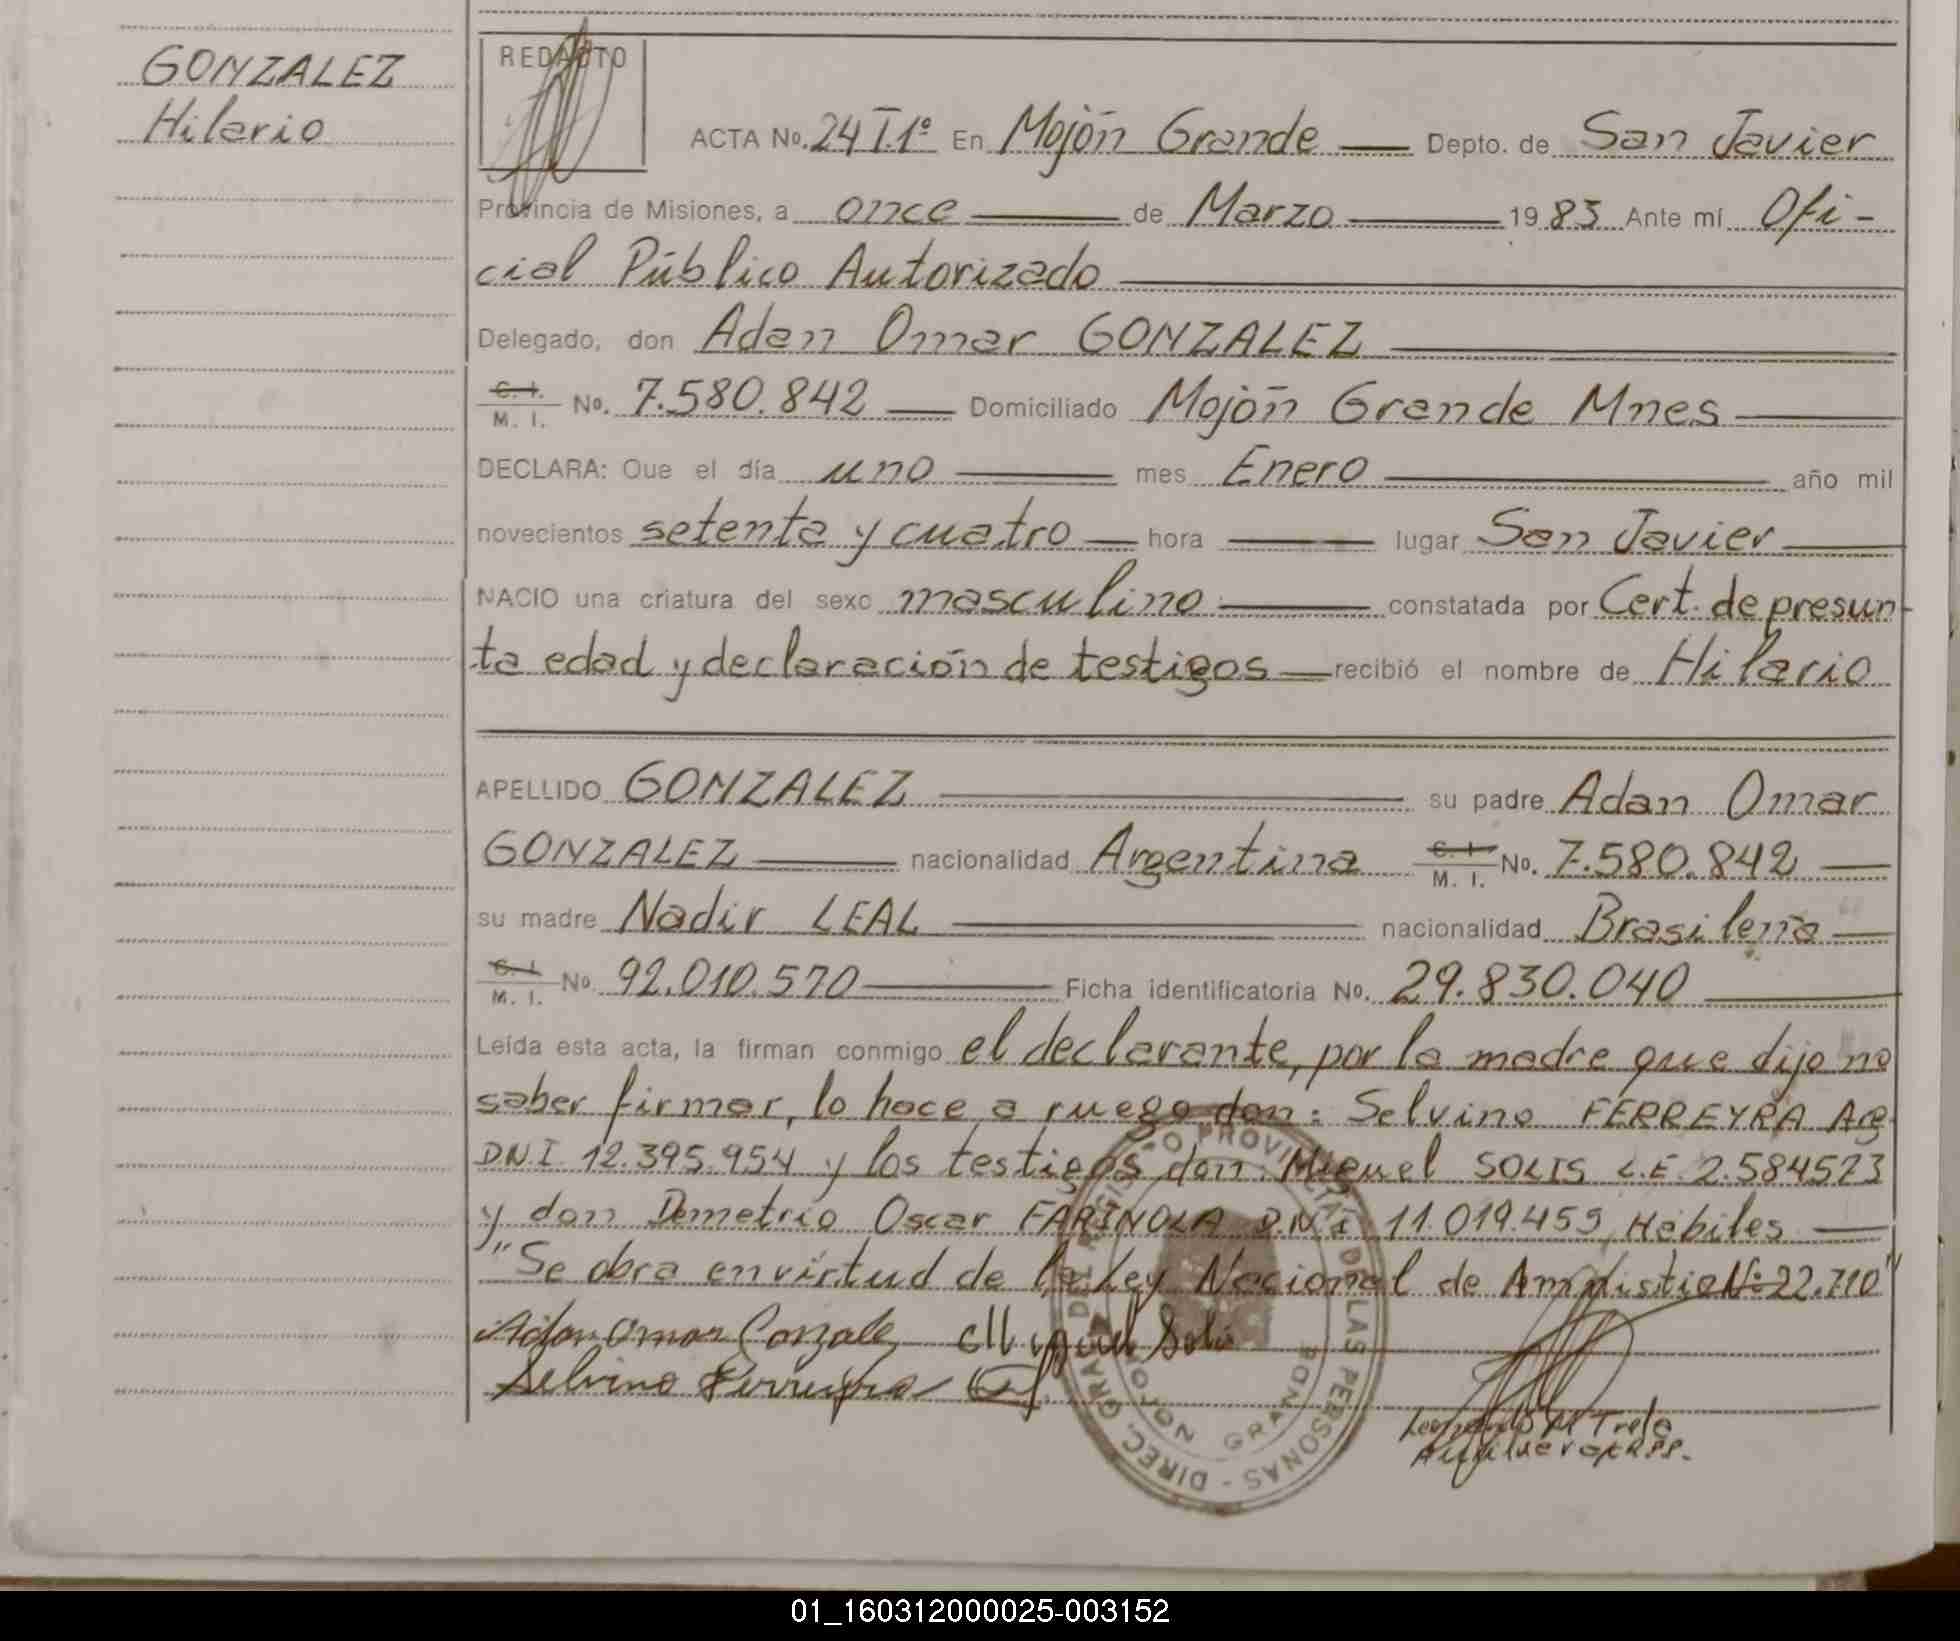 GONZALEZ
Hilario
REDACTO
ACTA No. 24 T.1º En Mojón Grande Depto. de San Javier
Provincia de Misiones, a once de Marzo 1983 Ante mí Ofi-
cial Público Autorizado
Delegado, don Adan Omar GONZALEZ
C. I. M. I. No. 7.580.842 Domiciliado Mojón Grande Mnes
DECLARA: Que el día uno mes Enero año mil
novecientos setenta y cuatro hora lugar San Javier
NACIO una criatura del sexo masculino constatada por Cert. de presun-
ta edad y declaración de testigos recibió el nombre de Hilario
APELLIDO GONZALEZ su padre Adan Omar
GONZALEZ nacionalidad Argentina C. I. M. I. No. 7.580.842
su madre Nadir LEAL nacionalidad Brasileña
C. I. M. I. No. 92.010.570 Ficha identificatoria No. 29.830.040
Leída esta acta, la firman conmigo el declarante, por la madre que dijo no
saber firmar, lo hace a ruego don: Selvino FERREYRA Arg.
D.N.I. 12.395.954 y los testigos don: Miguel SOLIS L.E. 2.584523
y don Demetrio Oscar FARINOLA D.N.I 11.019.459, Hábiles
"Se obra en virtud de la Ley Nacional de Amnistia Nº 22.710"
Adan Omar Gonzalez Miguel Solis
Selvino Ferreyra
DIREC. GRAL. DEL REGISTRO PROVINCIAL DE LAS PERSONAS -
MOJON GRANDE
M Trela
01_160312000025-003152